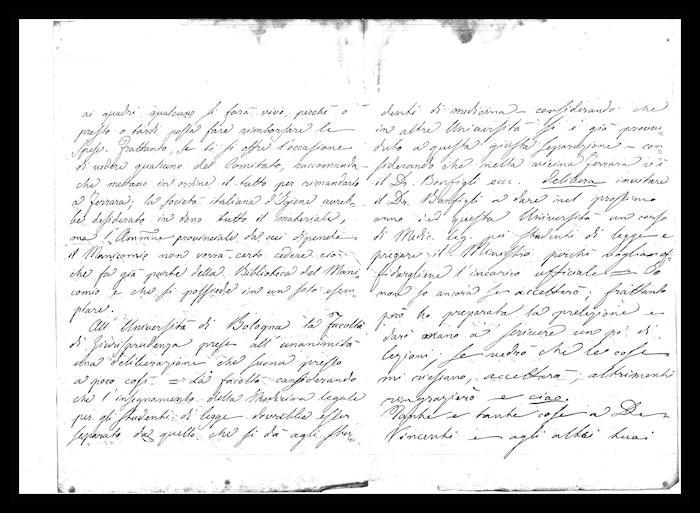 ai quadri qualcuno si farà vivo, perchè o
presto o tardi possa fare rimborsare le
spese. Frattanto, se ti si offre l'occasione
di vedere qualcuno del Comitato, raccomanda
che mettano in ordine il tutto per rimandarlo
a Ferrara; la Società italiana d'Igiene avreb-
be desiderato in dono tutto il materiale,
ma l'Ammne provinciale da cui dipende
il Manicomio non vorrà certo cedere ciò
che fa già parte della Biblioteca del Mani-
comio e che si possiede in un solo esem-
plare.
All'Università di Bologna la Facoltà
di Giurisprudenza prese all'unanimità
una deliberazione che suona presso
a poco così. = La facoltà considerando
che l'insegnamento della Medicina legale
per gli studenti di legge dovrebbe esser
separato da quello che si dà agli stu-
denti di medicina - considerando che
in altre Università si è già provve-
duto a questa giusta separazione - con-
siderando che nella vicina Ferrara v'è
il Dr. Bonfigli ecc. Delibera invitare
il Dr. Bonfigli a dare nel prossimo
anno in questa Università un corso
di Medic. leg. pei studenti di legge e
pregare il Ministro perchè voglia af-
fidargliene l'incarico ufficiale = Io
non so ancora se accetterò; frattanto
però ho preparata la prelezione e
darò mano a scrivere un po' di
lezioni; se vedrò che le cose
mi riescano, accetterò; altrimenti
ringrazierò e ciao.
Tante e tante cose a De-
Vincenti e agli altri tuoi